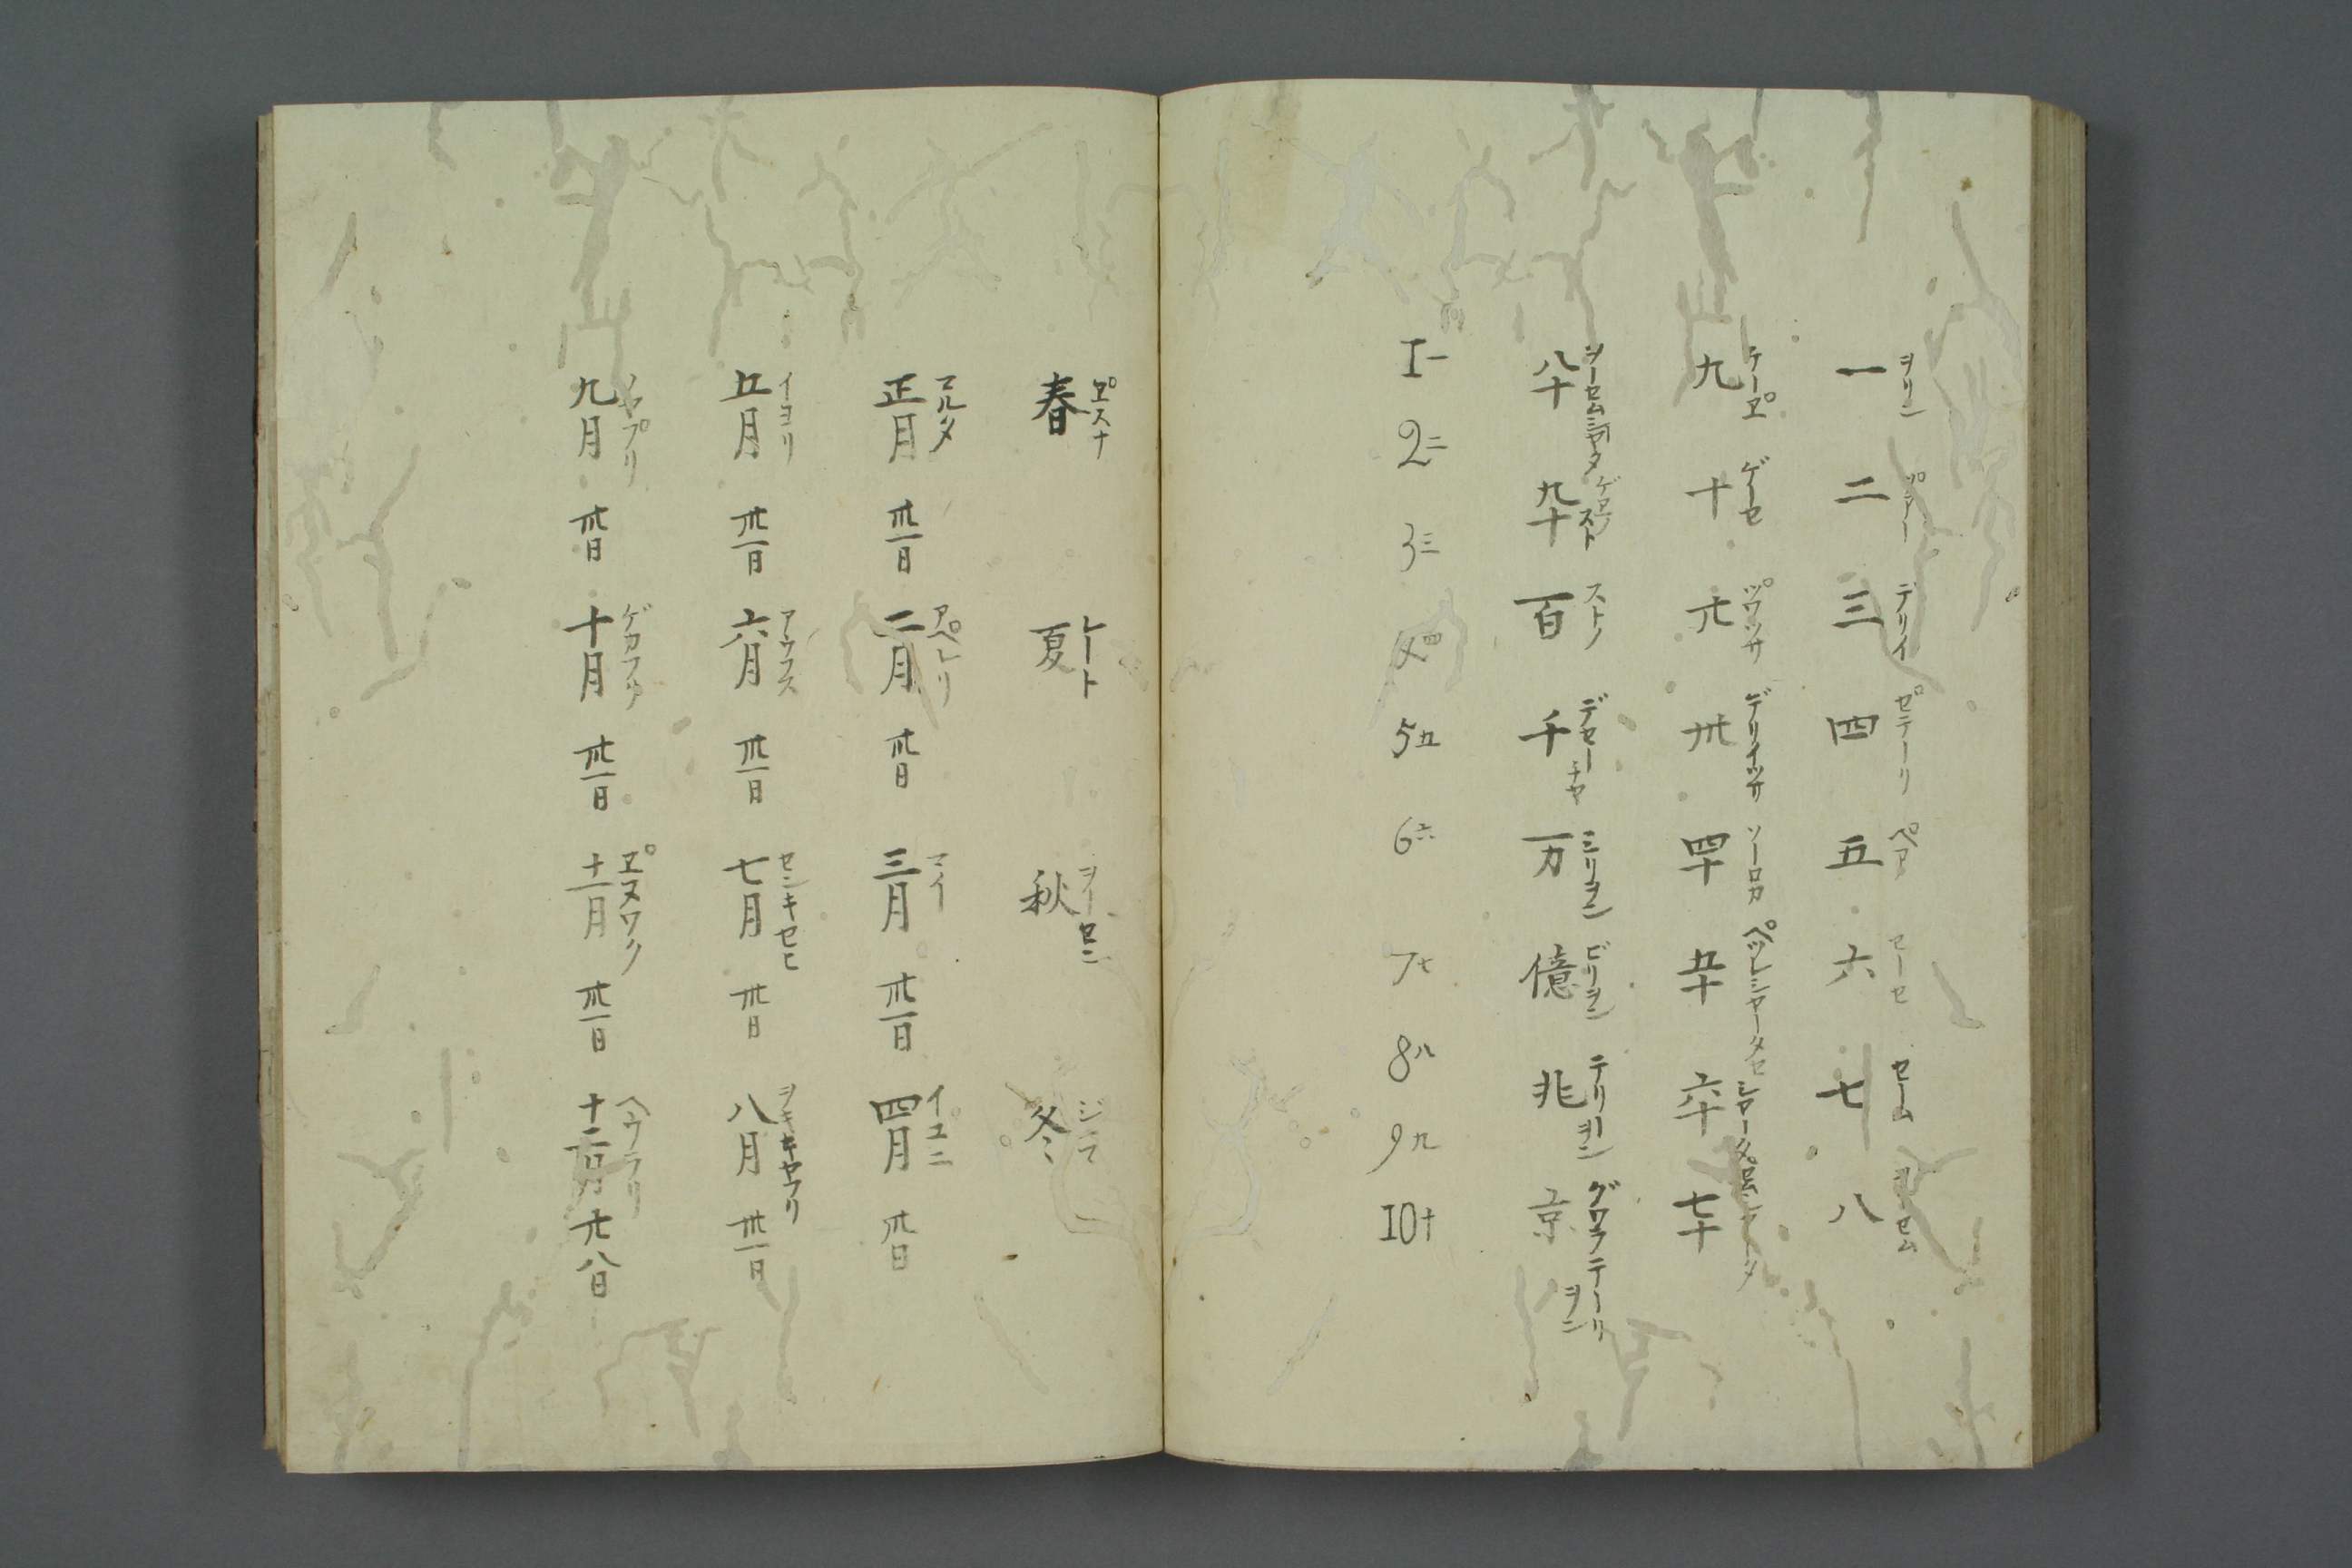 一 ヲリン 二 ヅアー 三 デリイ 四 セ゚テーリ 五 ペア 六 セーセ 七 セーム 八 ヲーセム
九 ケーヱ゚ 十 ゲーセ 卄 ツ゚ウツサ 卅 デリイツサ 四十 ソーロカ 五十 ペツシヤータセ 六十 七十
八十 九十 百 ストノ 千 デセーチヤ 万 ミリヲン 億 ビリヲン 兆 テリーヲン 京 グワフテーリヲン
1一 2二 3三 四 5五 6六 7七 8八 9九 10十
春 ヱ゚スナ 夏 レート 秋 ヲーセニ 冬 ジマ
正月 マルタ 卅一日 二月 アペレリ 卅日 三月 マイ 卅一日 四月 イユニ 卅日
五月 イヨリ 卅一日 六月 アウフス 卅一日 七月 セシキセヒ 卅日 八月 ヲキキヤフリ 卅一日
九月 ノヤプリ 卅日 十月 ゲカフリ 卅一日 十一月 ヱ゚ヌワリ 卅一日 十二月 ヘウラリ 卄八日